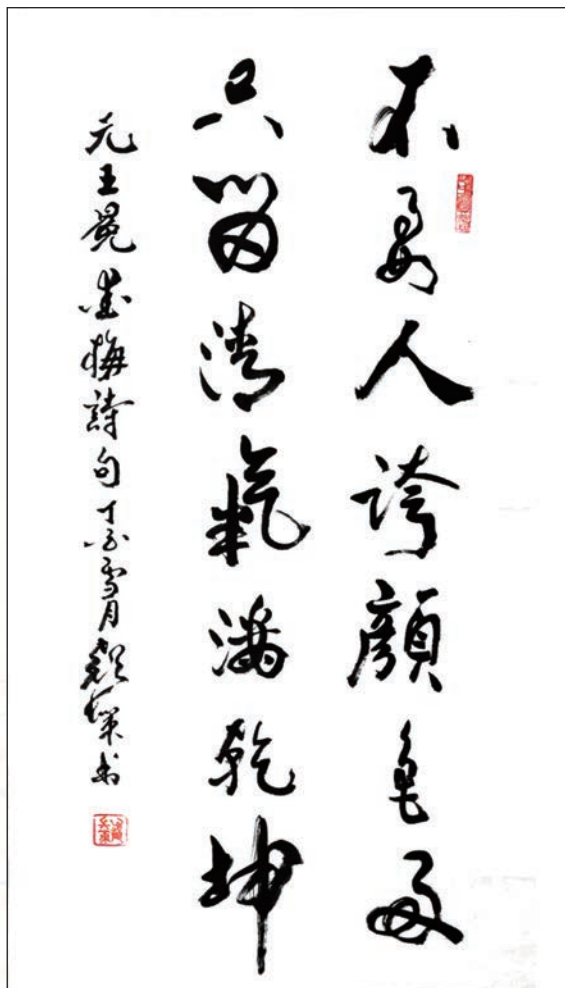 不要人誇顏色好
只留清氣滿乾坤
元王冕梅詩句雪月書